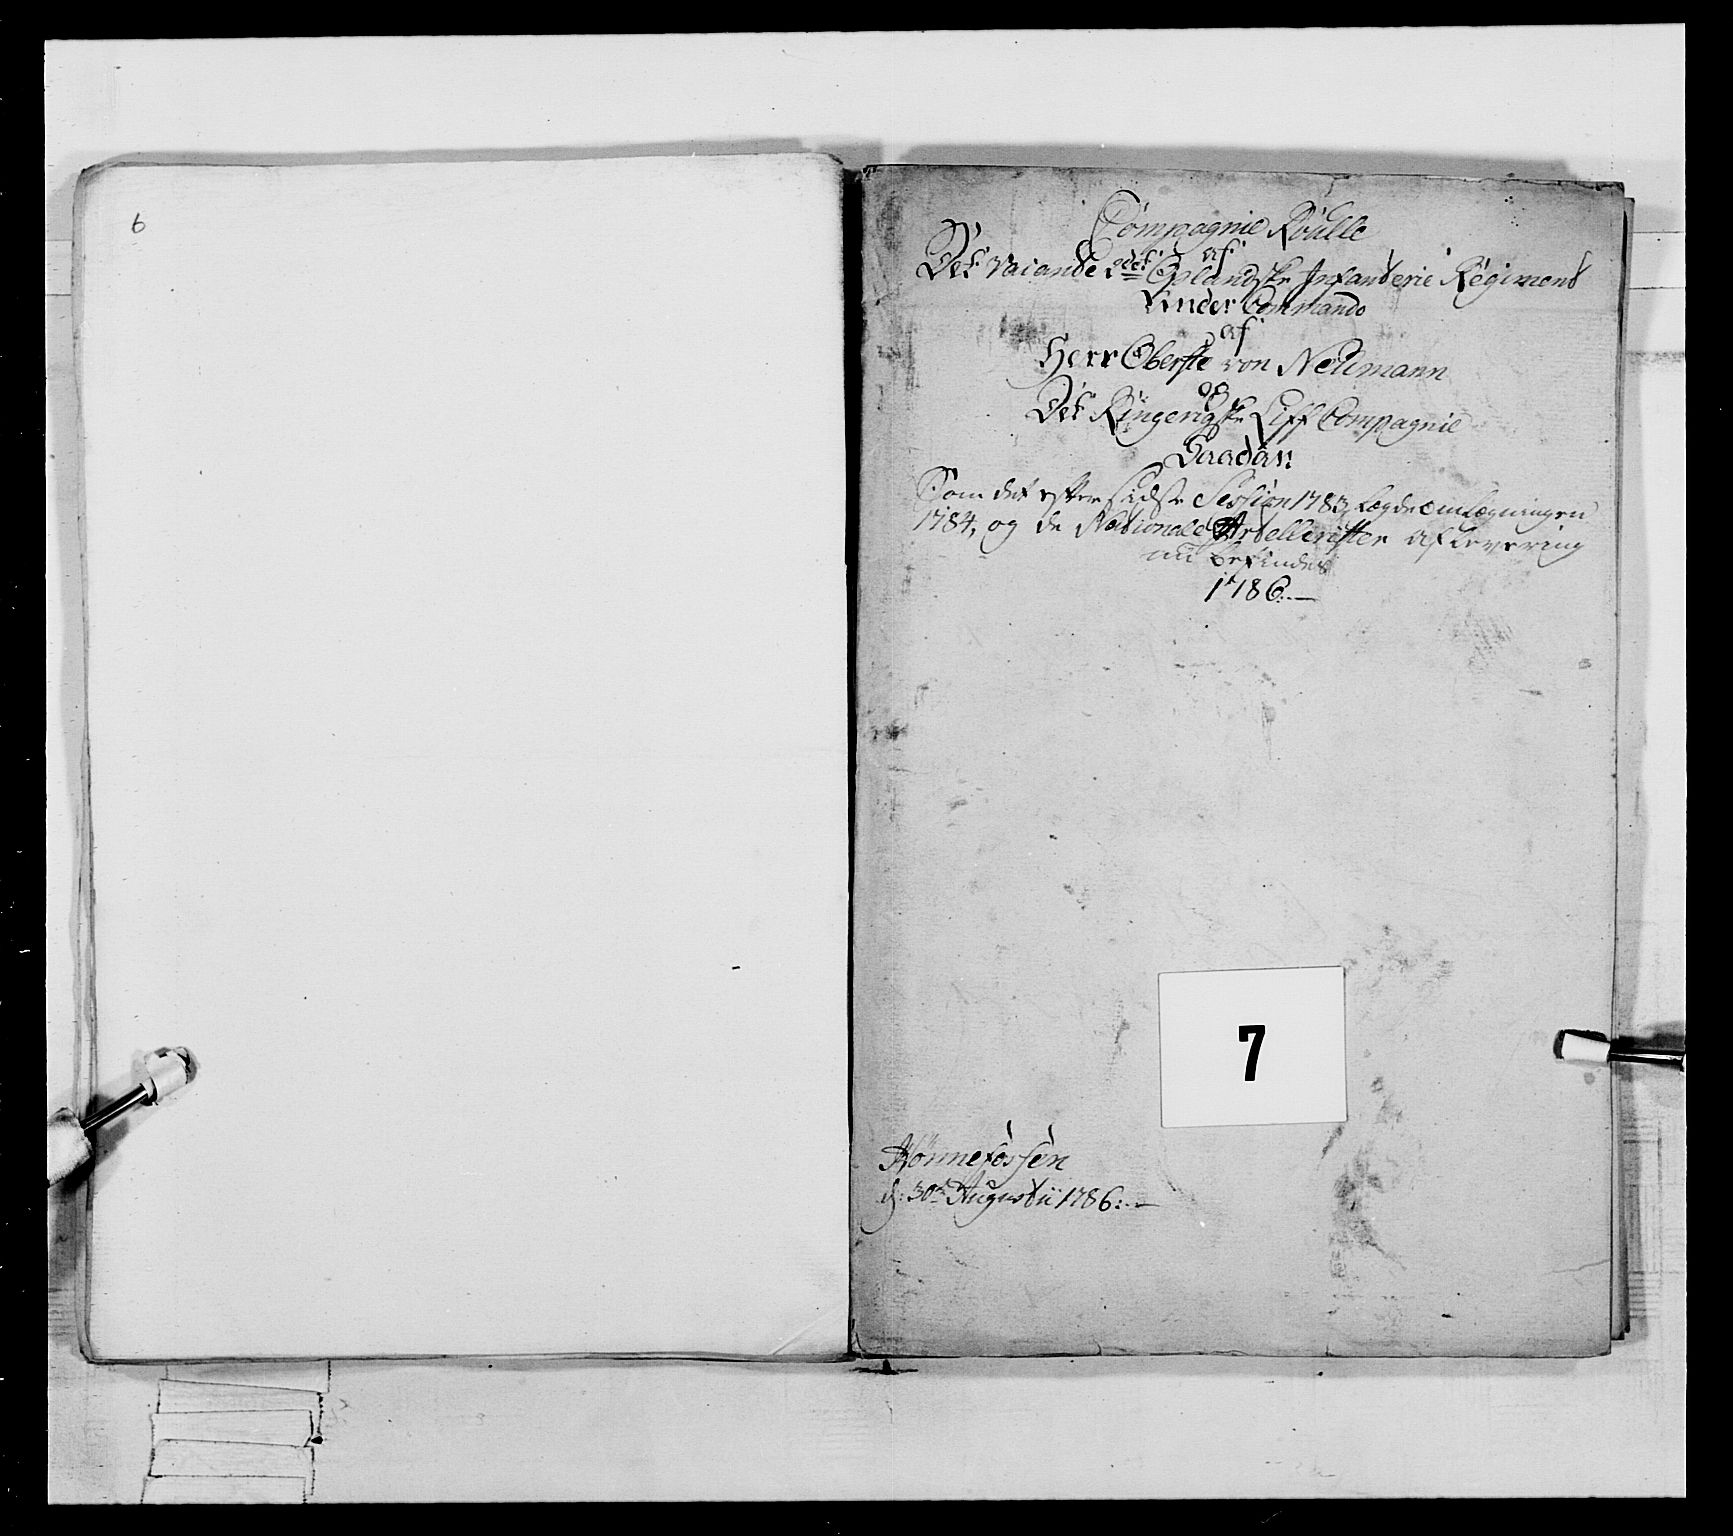 6
Compagnie Roulle
af
Det Vacande 2det Oplandske Infanterie Regiment
Under Commando
af
Herr Oberste von Neumann
og
Det Ringerigske Liff Compagnie
Saadan
Som det efter sidste Session 1783, Lægdeomlægningen
1784, og de Nationale Artellerister aflevering
nu befindes
1786:—
7
Hönneforsen
d: 30te Augustii 1786:—